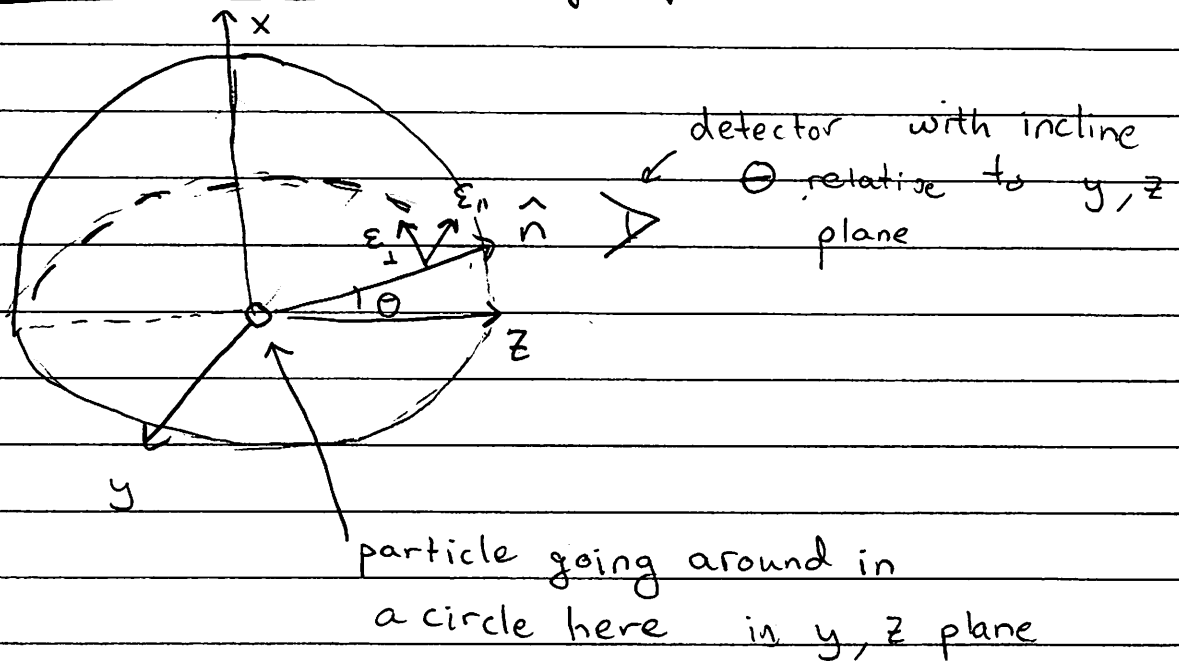 x
detector with incline
Θ relative to y, z
plane
ε⊥ ε∥ n̂
Θ
z
y
particle going around in
a circle here in y, z plane